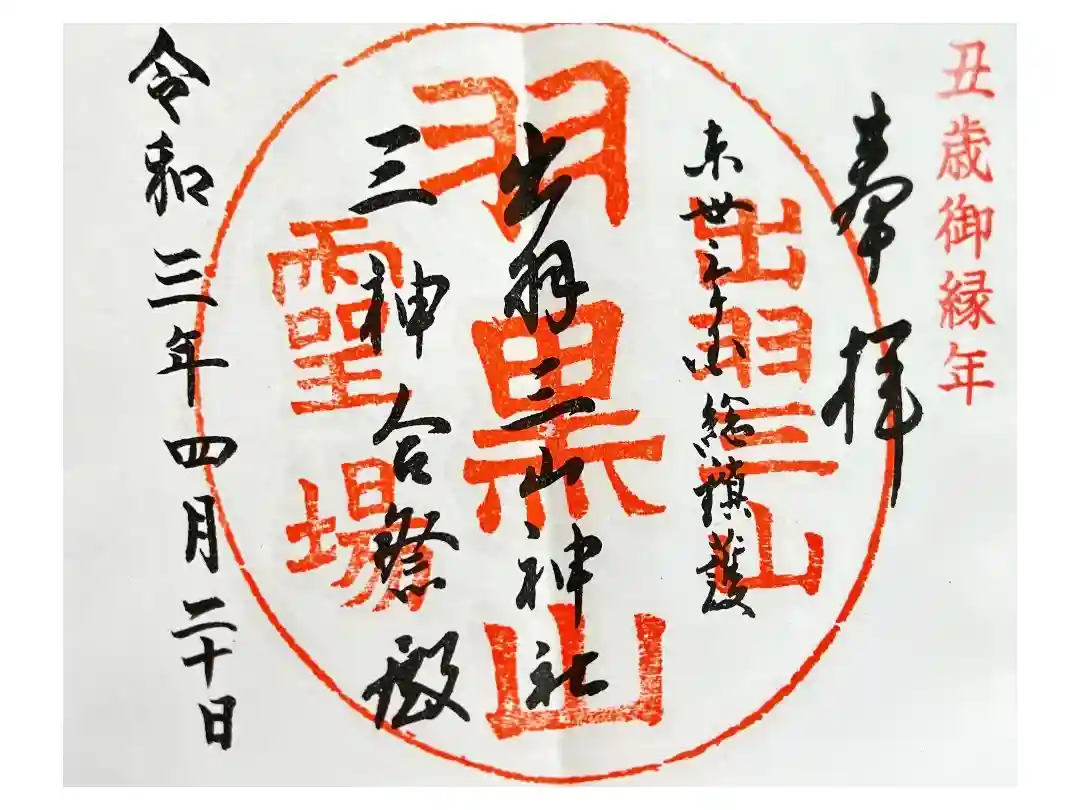 丑歳御縁年
奉拝
東卅三ヶ国総鎮護
出羽三山神社
三神合祭殿
令和三年四月二十日
出羽三山
羽黒山
靈場